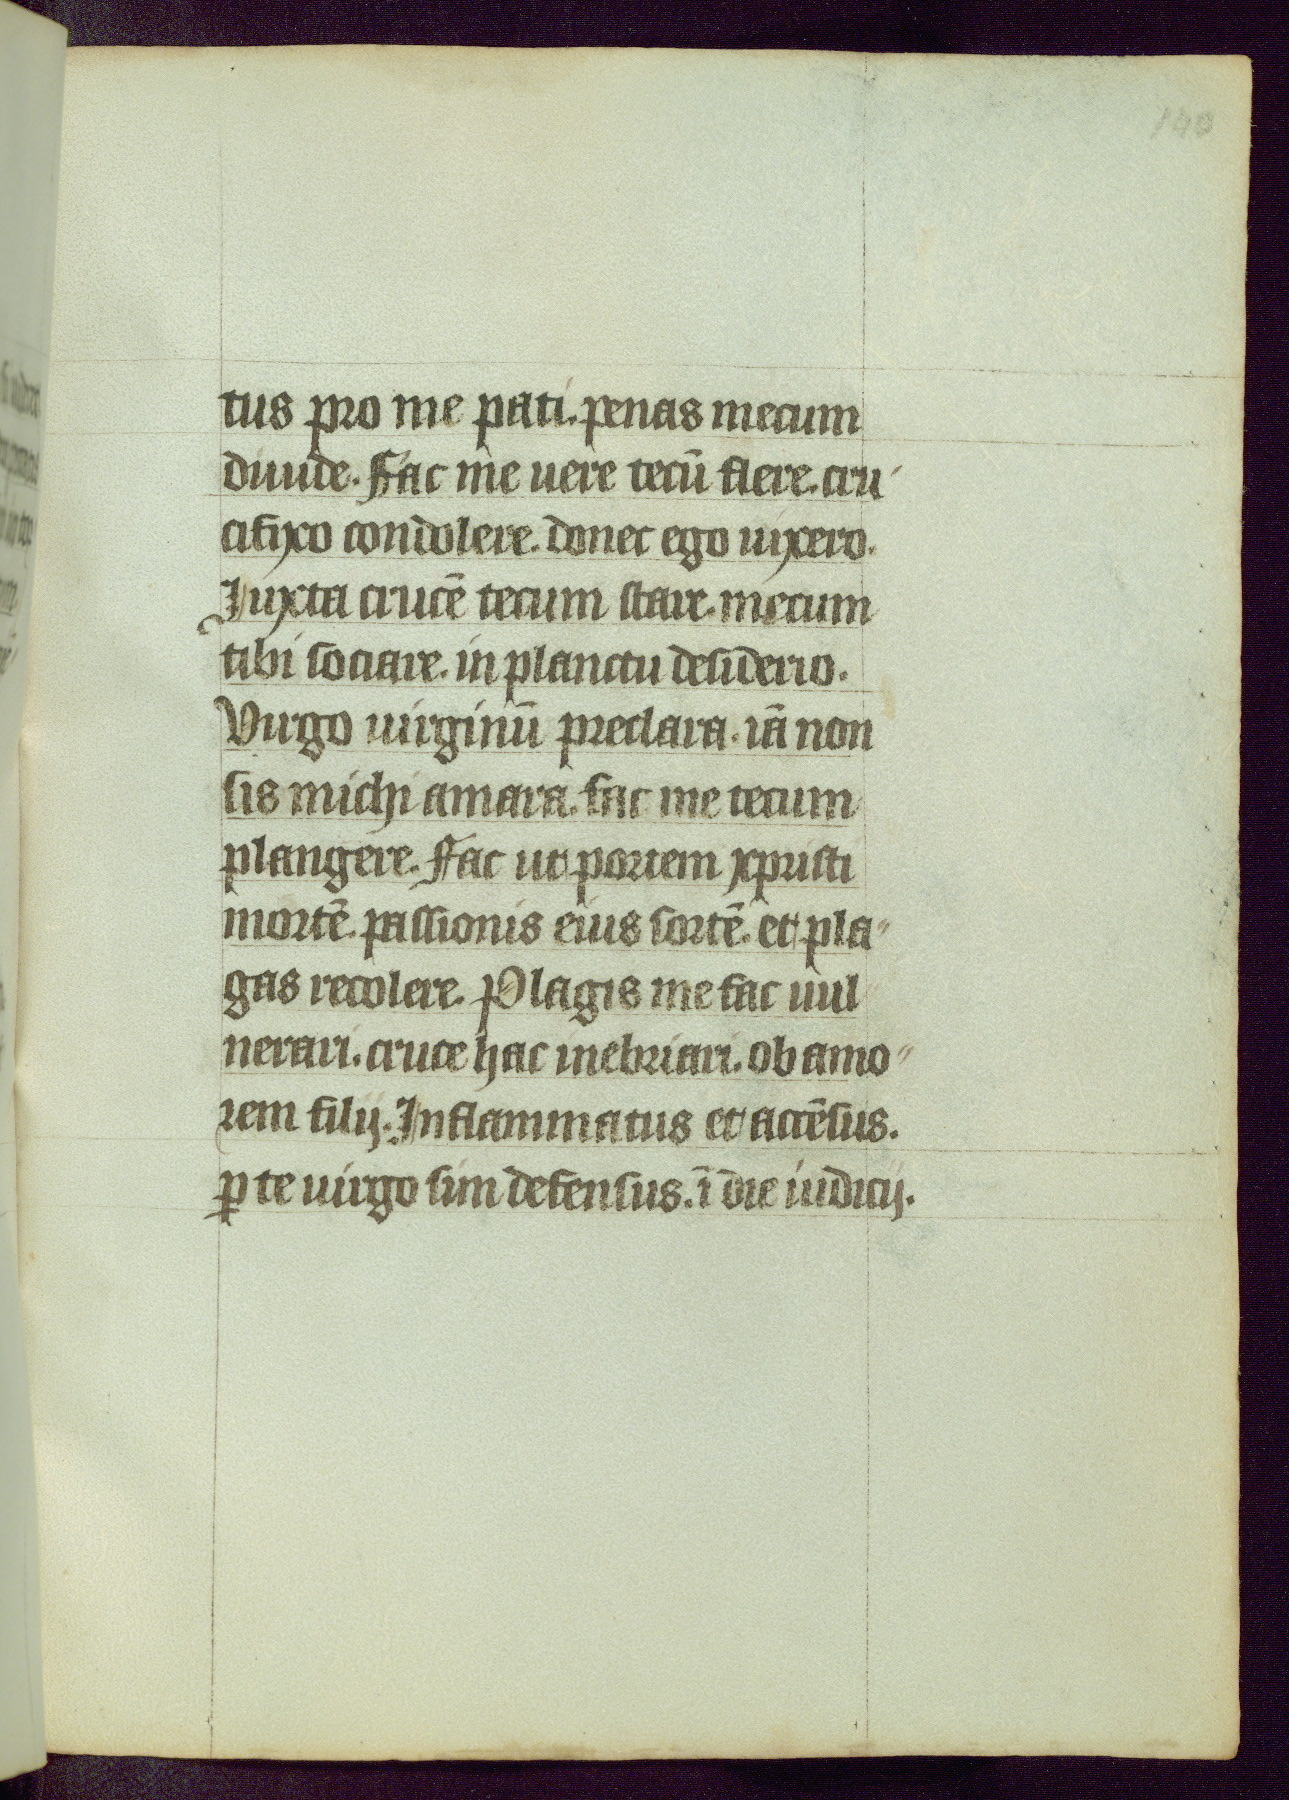 140
tus pro me pati. penas mecum
diuide. Fac me uere tecū flere. cru
cifixo condolere. donec ego uixero.
Iuxta crucē tecum stare. mecum
tibi sociare. in planctu desiderio.
Virgo uirginū preclara. iā non
sis michi amara. fac me tecum
plangere. Fac ut portem xpristi
mortē. passionis eius sortē. et pla"
gas recolere. Plagis me fac uul
nerari. cruce hac inebriari. ob amo"
rem filij. Inflammatus et accēsus.
ꝑ te uirgo sim defensus. ī die iudicij.